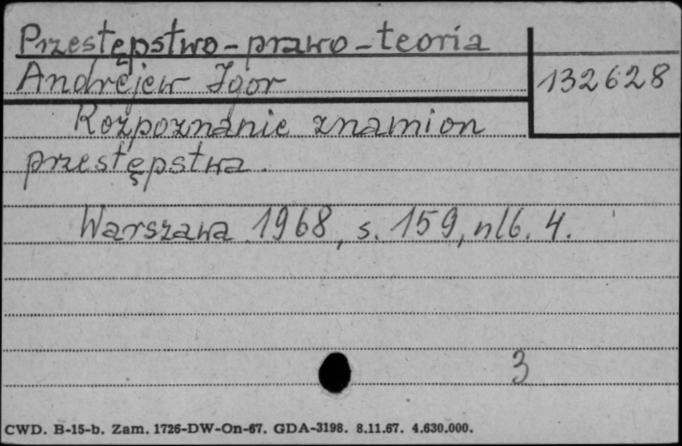 Przestępstwo - prawo - teoria
Andrejew Igor
132628
Rozpoznanie znamion
przestępstwa.
Warszawa 1968, s. 159, nlb. 4.
3
CWD. B-15-b. Zam. 1726-DW-On-67. GDA-3198. 8.11.67. 4.630.000.